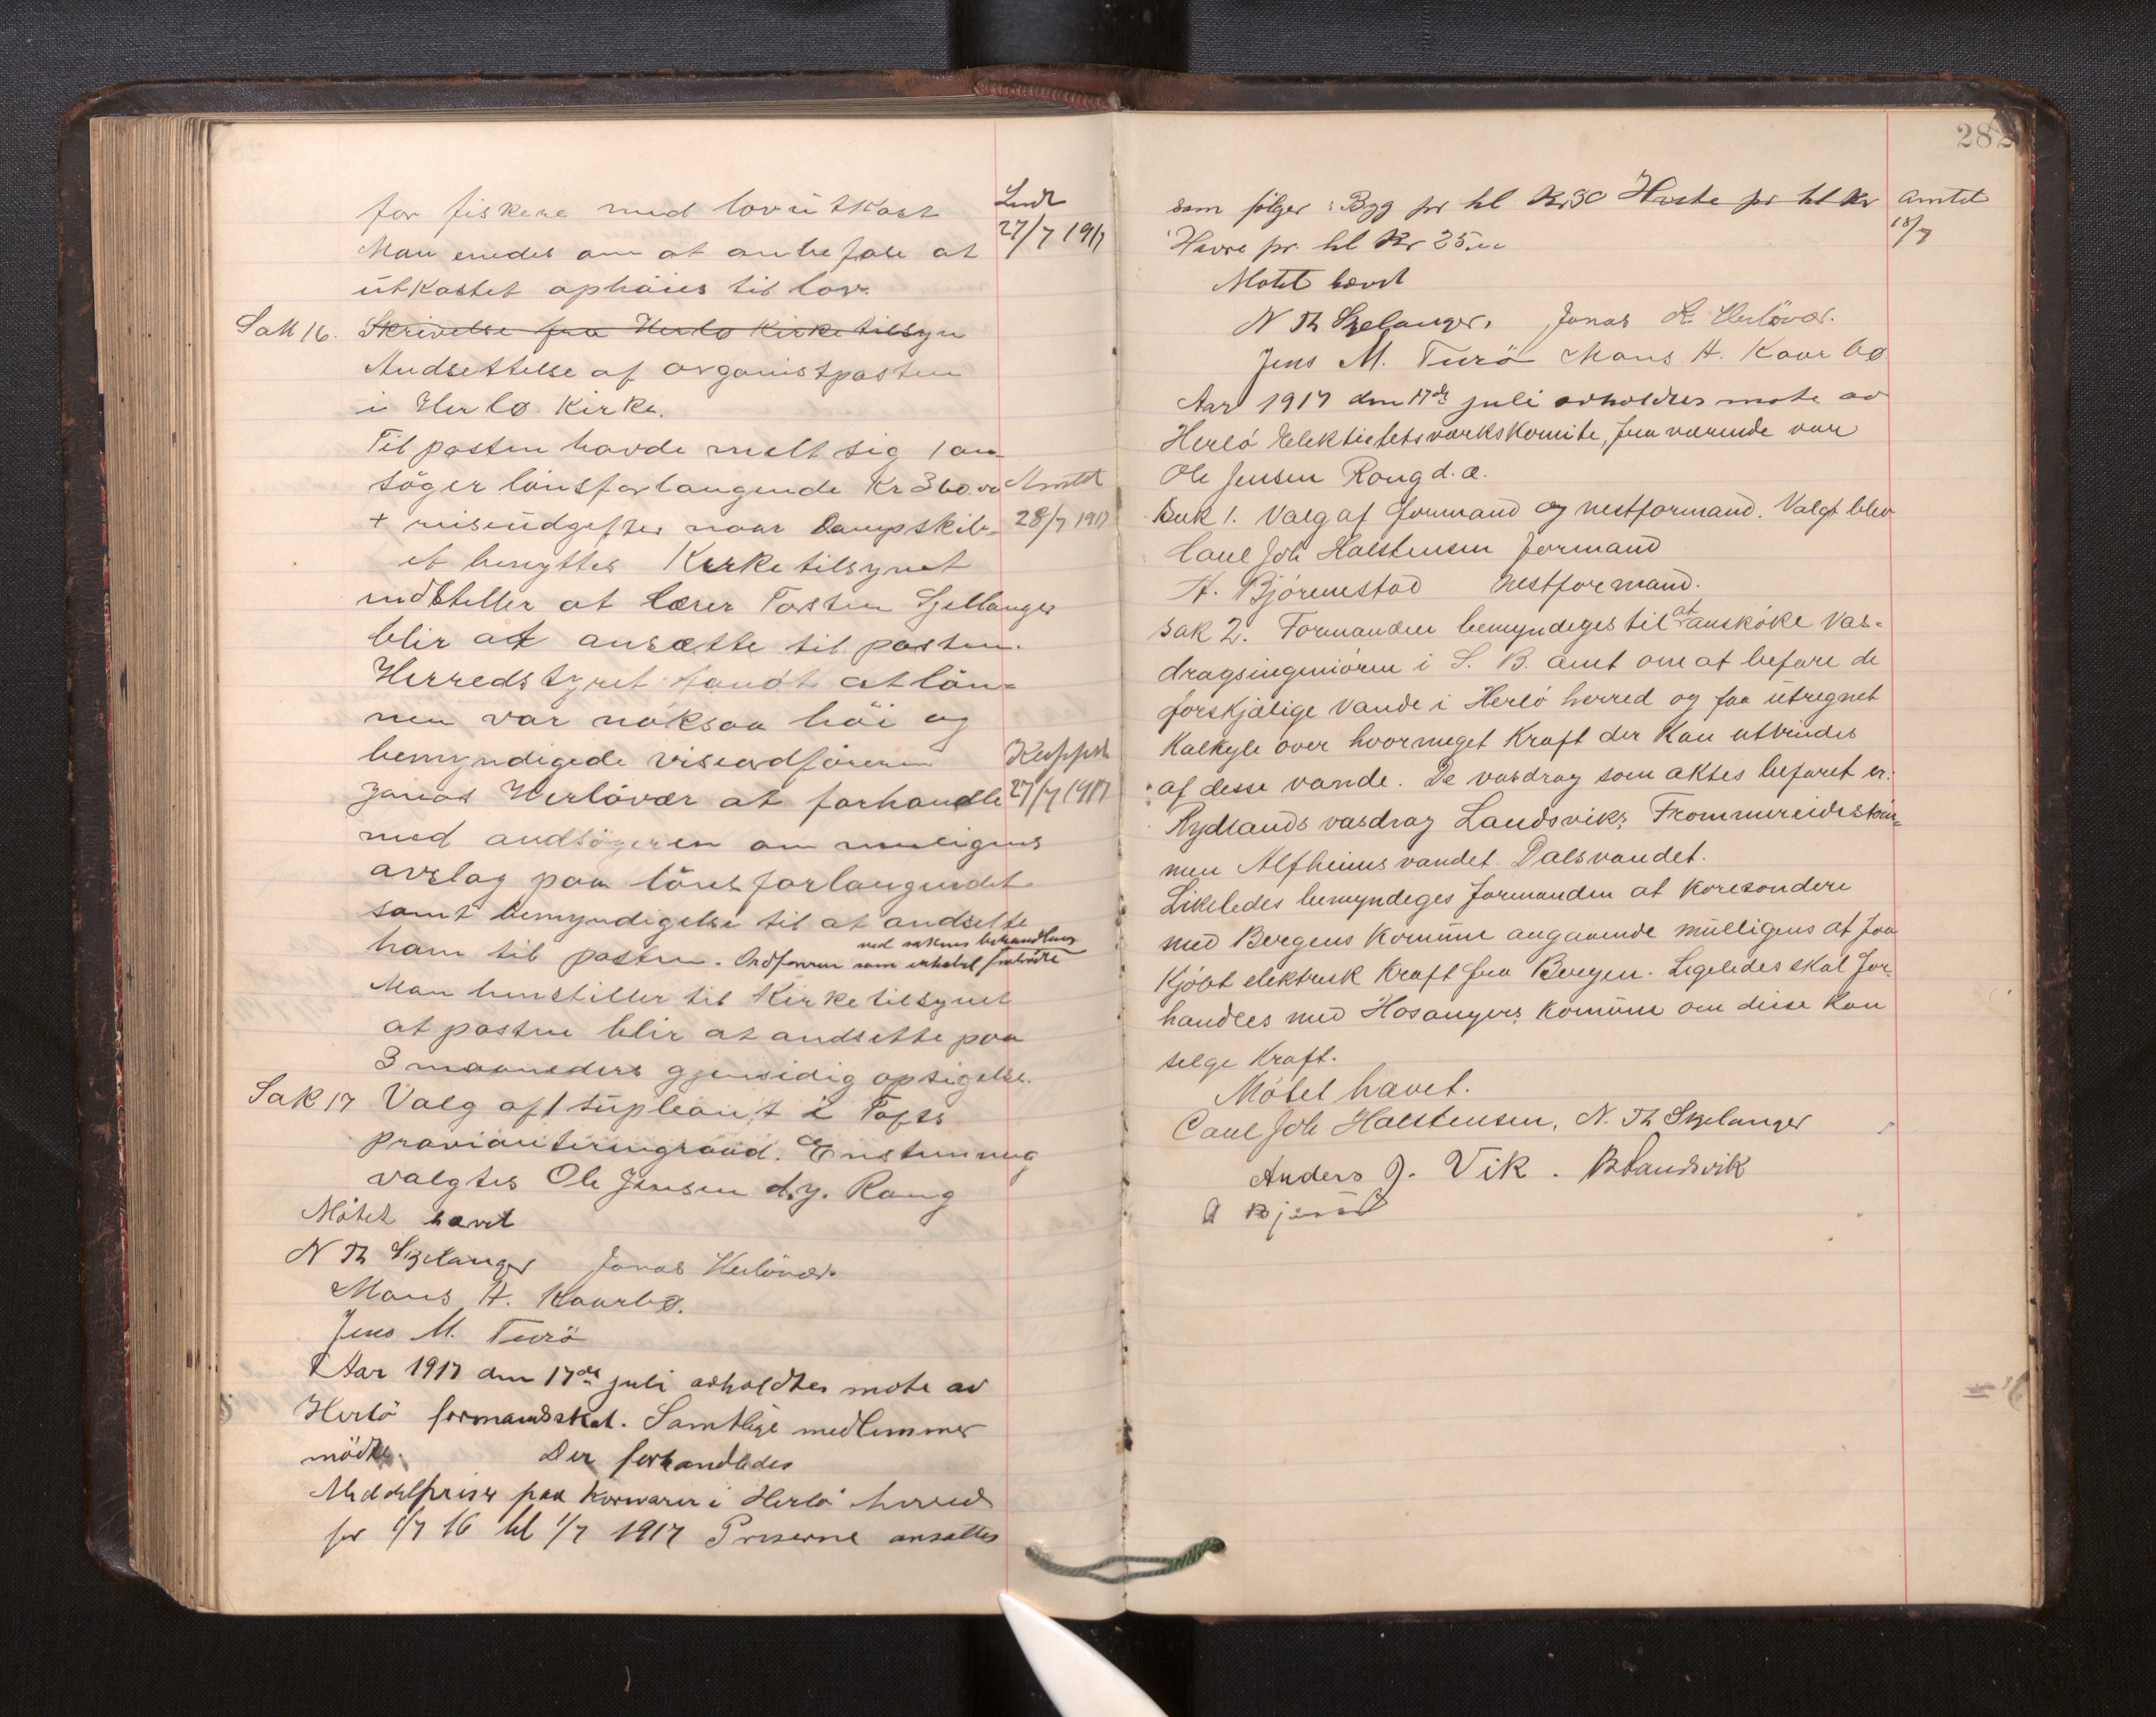 for fiskere med lovutkast
Man enedes om at anbefale at
utkastet ophöies til lov.
Sak 16. Skrivelse fra Herlo Kirketilsyn
Andsettelse af organistposten
i Herlo Kirke.
Til posten havde melt sig 1 an-
söger lönsforlangende Kr 360.00
+ reiseudgifter naar Dampskib-
et benyttes Kirketilsynet
indstiller at lærer Torsten Sjellanger
blir at ansætte til posten.
Herredstyret fandt at lön-
nen var noksaa höi og
bemyndigede viseordföreren
Jonas Herlövær at forhandle
med andsögeren om muligens
avslag paa lönsforlangendet
samt bemyndigelse til at andsette
ved sakens behandling
ham til posten. Ordföreren som inhabil fratraadte
Man henstiller til Kirketilsynet
at posten blir at andsette paa
3 maaneders gjensidig opsigelse.
Sak 17 Valg af 1 supleant i
provianteringsraad. Enstemmig
valgtes Ole Jensen d.y. Rong
Mötet hævet
N Th Sjelanger Jonas Herlövær.
Mons H. Kaarbø.
Jens M. Turö
Aar 1917 den 17de juli avholdtes mote av
Herlö formandskab. Samtlige medlemmer
mödte. Der forhandledes
Middelpriser paa Kornvarer i Herlö herred
for 1/7 16 til 1/7 1917 Priserne ansattes
Sendt
27/7 1917
Amtet
28/7 1917
27/7 1917
282
som fölger: Byg pr hl Kr 30 Hvete pr hl Kr
Havre pr. hl Kr 25.00
Amtet
18/7
Motet hævet
N Th Sjelanger, Jonas L. Herlövær.
Jens M. Turö Mons H. Kaarbø
Aar 1917 den 17de juli avholdtes mote av
Herlö Elektisitetsværkskomite, fraværende var
Ole Jensen Rong d.æ.
Sak 1. Valg af formand og nestformand. Valgt blev
Carl Joh Halstensen formand
A. Björnestad nestformand.
Sak 2. Formanden bemyndiges til at anskóke Vas-
dragsingeniören i S. B. amt om at befare de
forskjælige vande i Herló herred og faa utregnet
Kalkyle over hvormeget Kraft der Kan utvindes
af desse vande. De vasdrag som aktes befaret er:
Rydlands vasdrag Landsviks, Frommereidstön-
nen Alfheimsvandet. Dalsvandet.
Likeledes bemyndeges formanden at Koresondere
med Bergens Komune angaaende mulligens at faa
Kjöbt elektrisk Kraft fra Bergen. Ligeledes skal for-
handles med Hosangers Komune om disse Kan
selge Kraft.
Mötet hævet.
Carl Joh Halstensen, N. Th Sjelanger
Anders J. Vik. B Landsvik
A